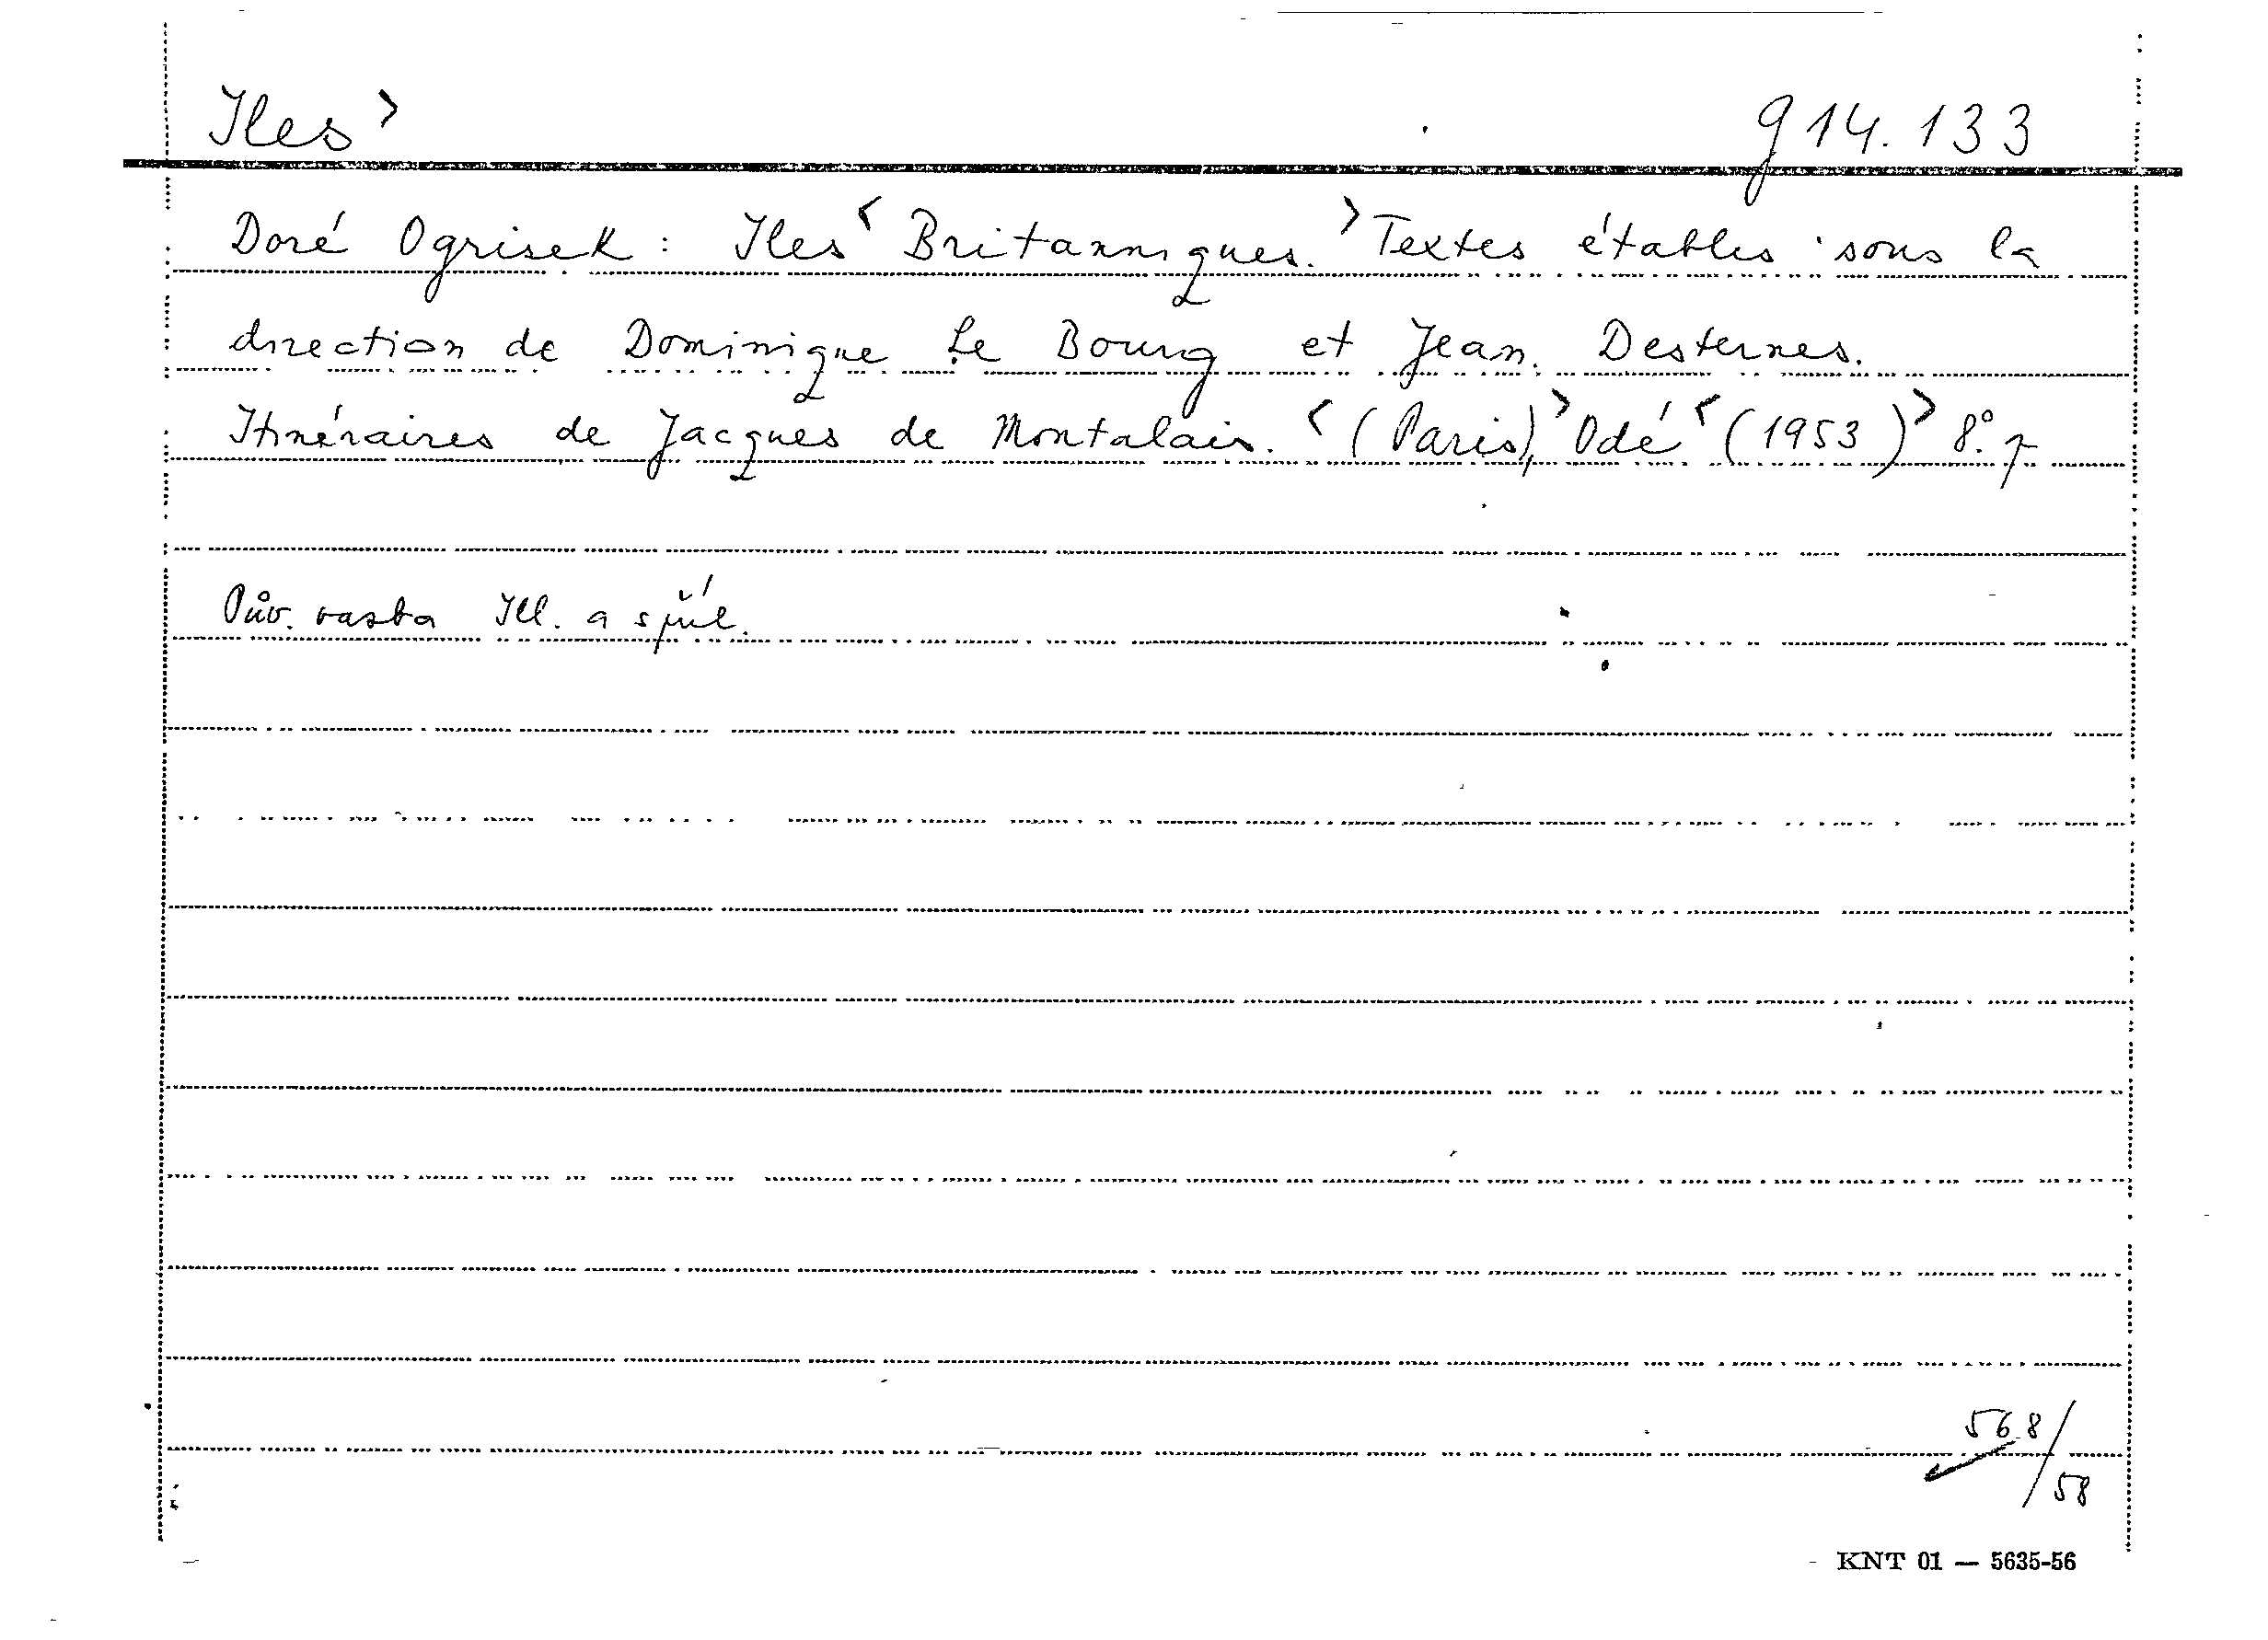 Iles > g 14.133
Doré Ogrisek: Iles < Britanniques. > Textes établis sous la
direction de Dominique Le Bourg et Jean. Desternes.
Itinéraires de Jacques de Montalais. < (Paris), > Odé < (1953) > 8°.
Pův. vazba Ill. a příl.
568/58
KNT 01 — 5635-56